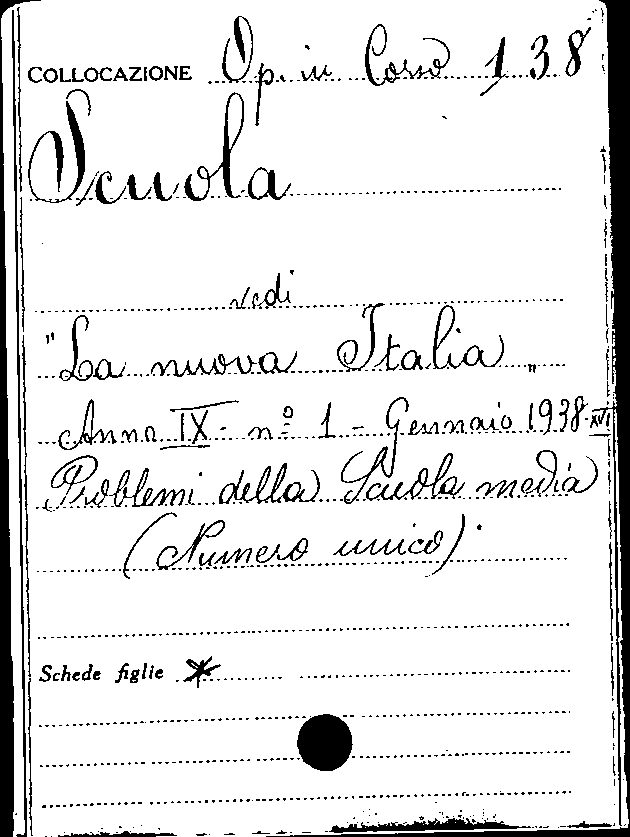 COLLOCAZIONE Op. in Corso 138
Scuola
vedi
"La nuova Italia„
Anno IX - nº 1 - Gennaio 1938-XVI
Problemi della Scuola media
(Numero unico).
Schede figlie *